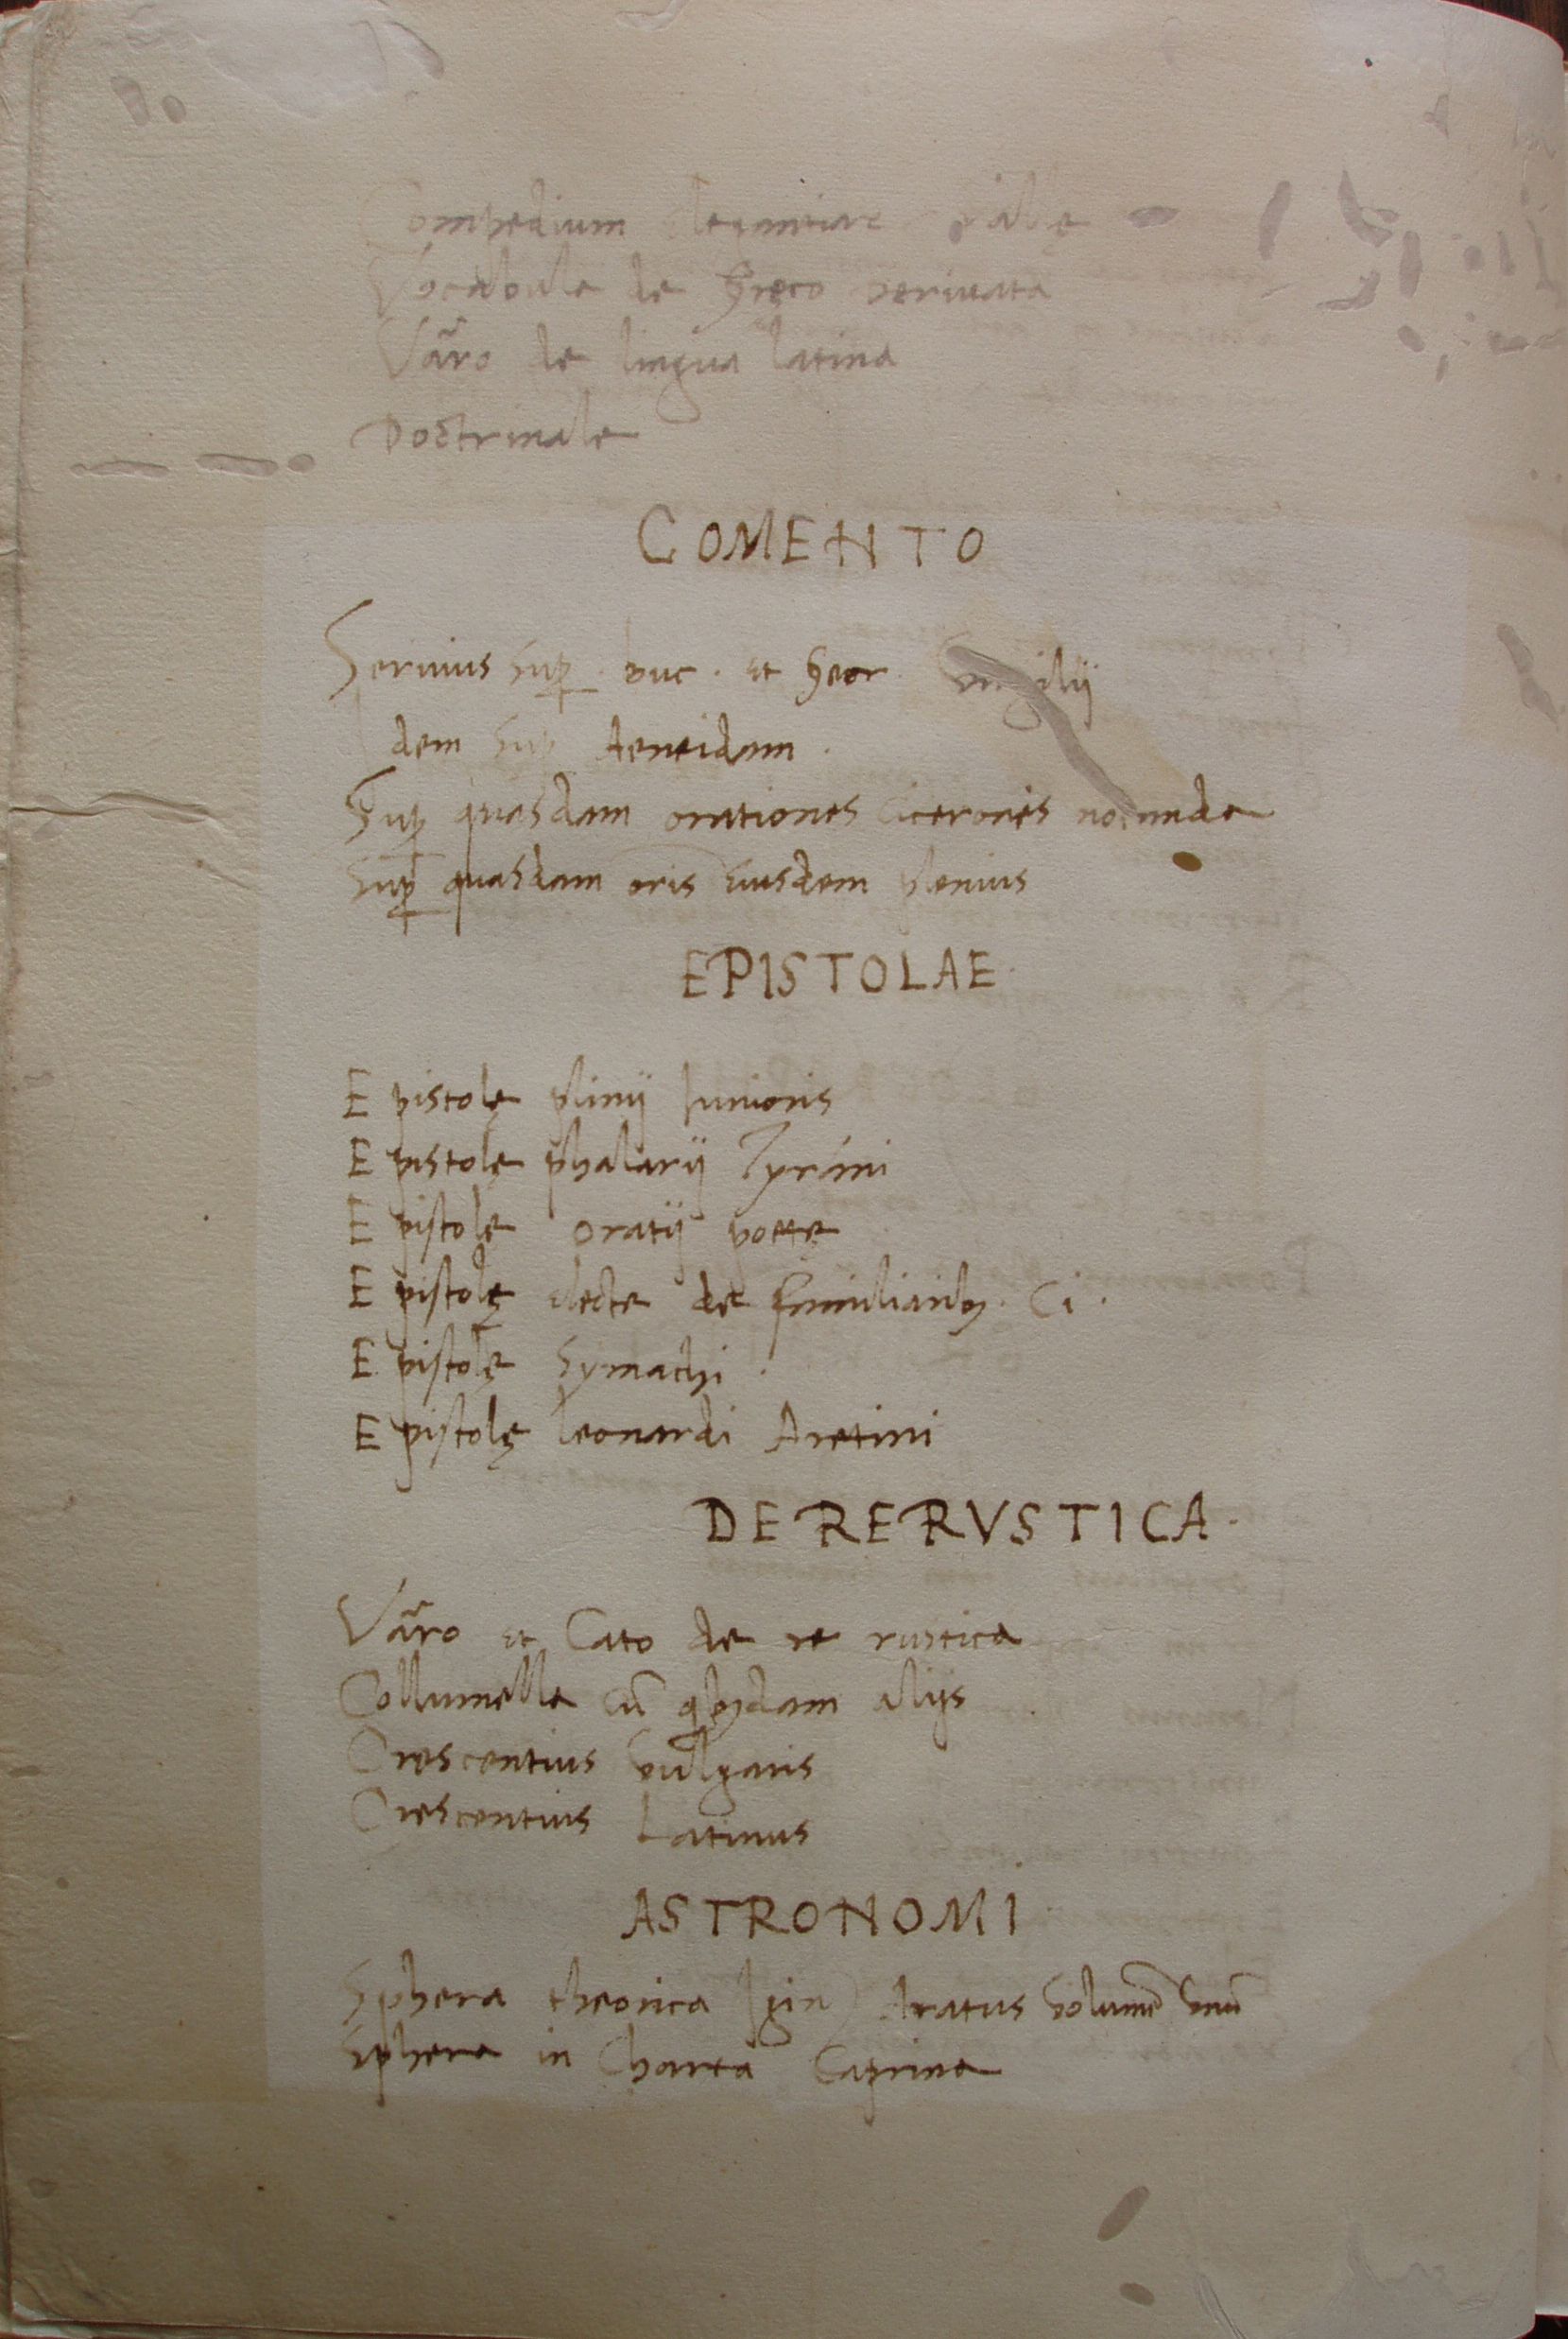 Compedium elegantiar. valle
Vocabula de Greco derivata
Vãro de lingua latina
Doctrinale
COMENTO
Servius sup buc. et Geor. Virgilij
dem sup Aeneidam.
Sup quasdam orationes Ciceronis
Sup quasdam oris Eiusdem plenius
EPISTOLAE
Epistolę plinij Iunioris
Epistolę phalarij Tyrãni
Epistolę oratij poete
Epistolę electe de familiaribꝫ. Ci.
Epistolę Symachi.
Epistolę leonardi Aretini
DE RE RVSTICA.
Vãro et Cato de re rustica
Collumella cũ qbꝫdam alijs
Crescentius vulgaris
Crescentius Latinus
ASTRONOMI
Sphera theorica Igin) Aratus volumẽ vnũ
Sphera in Charta Caprina